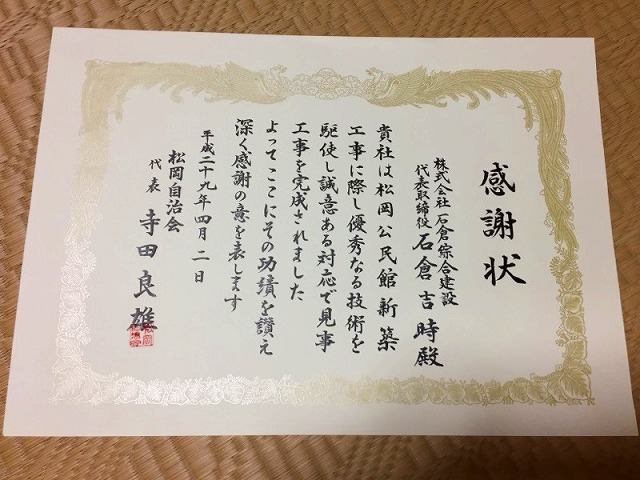 感謝状
株式会社石倉綜合建設
代表取締役 石倉吉時殿
貴社は松岡公民館新築
工事に際し優秀なる技術を
駆使し誠意ある対応で見事
工事を完成されました
よってここにその功績を讃え
深く感謝の意を表します
平成二十九年四月二日
松岡自治会
代表 寺田良雄